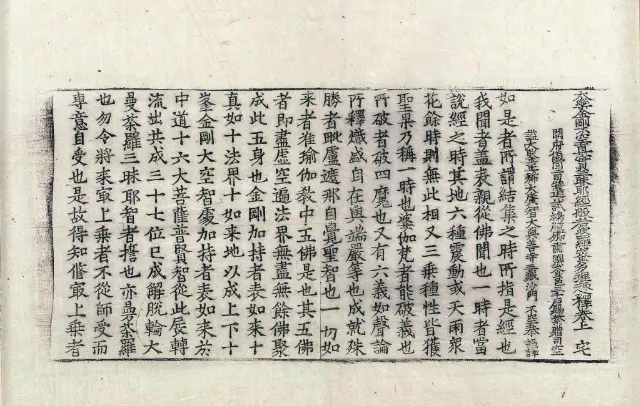 大樂金剛不空真實三昧耶經般若波羅蜜多理趣釋卷上 宅
開府儀同三司特進試鴻臚卿肅國公食邑三千戶賜紫贈司空
謚大鑒正號大廣智大興善寺三藏沙門 不空奉 詔譯
如是者所謂結集之時所指是經也
我聞者盖表親從佛聞也一時者當
說經之時其地六種震動或天雨衆
花餘時則無此相又三乘種性皆獲
聖果乃稱一時也婆伽梵者能破義也
所破者破四魔也又有六義如聲論
所釋熾盛自在與端嚴等也成就殊
勝者毗盧遮那自覺聖智也一切如
来者准瑜伽教中五佛是也其五佛
者即盡虛空遍法界無盡無餘佛聚
成此五身也金剛加持者表如来十
真如十法界十如来地以成上下十
峯金剛大空智處加持者表如来於
中道十六大菩薩普賢智從此展轉
流出共成三十七位已成解脫輪大
曼荼羅三昧耶智者誓也亦曼荼羅
也勿令將来㝡上乘者不從師受而
專意自受也是故得知修㝡上乘者